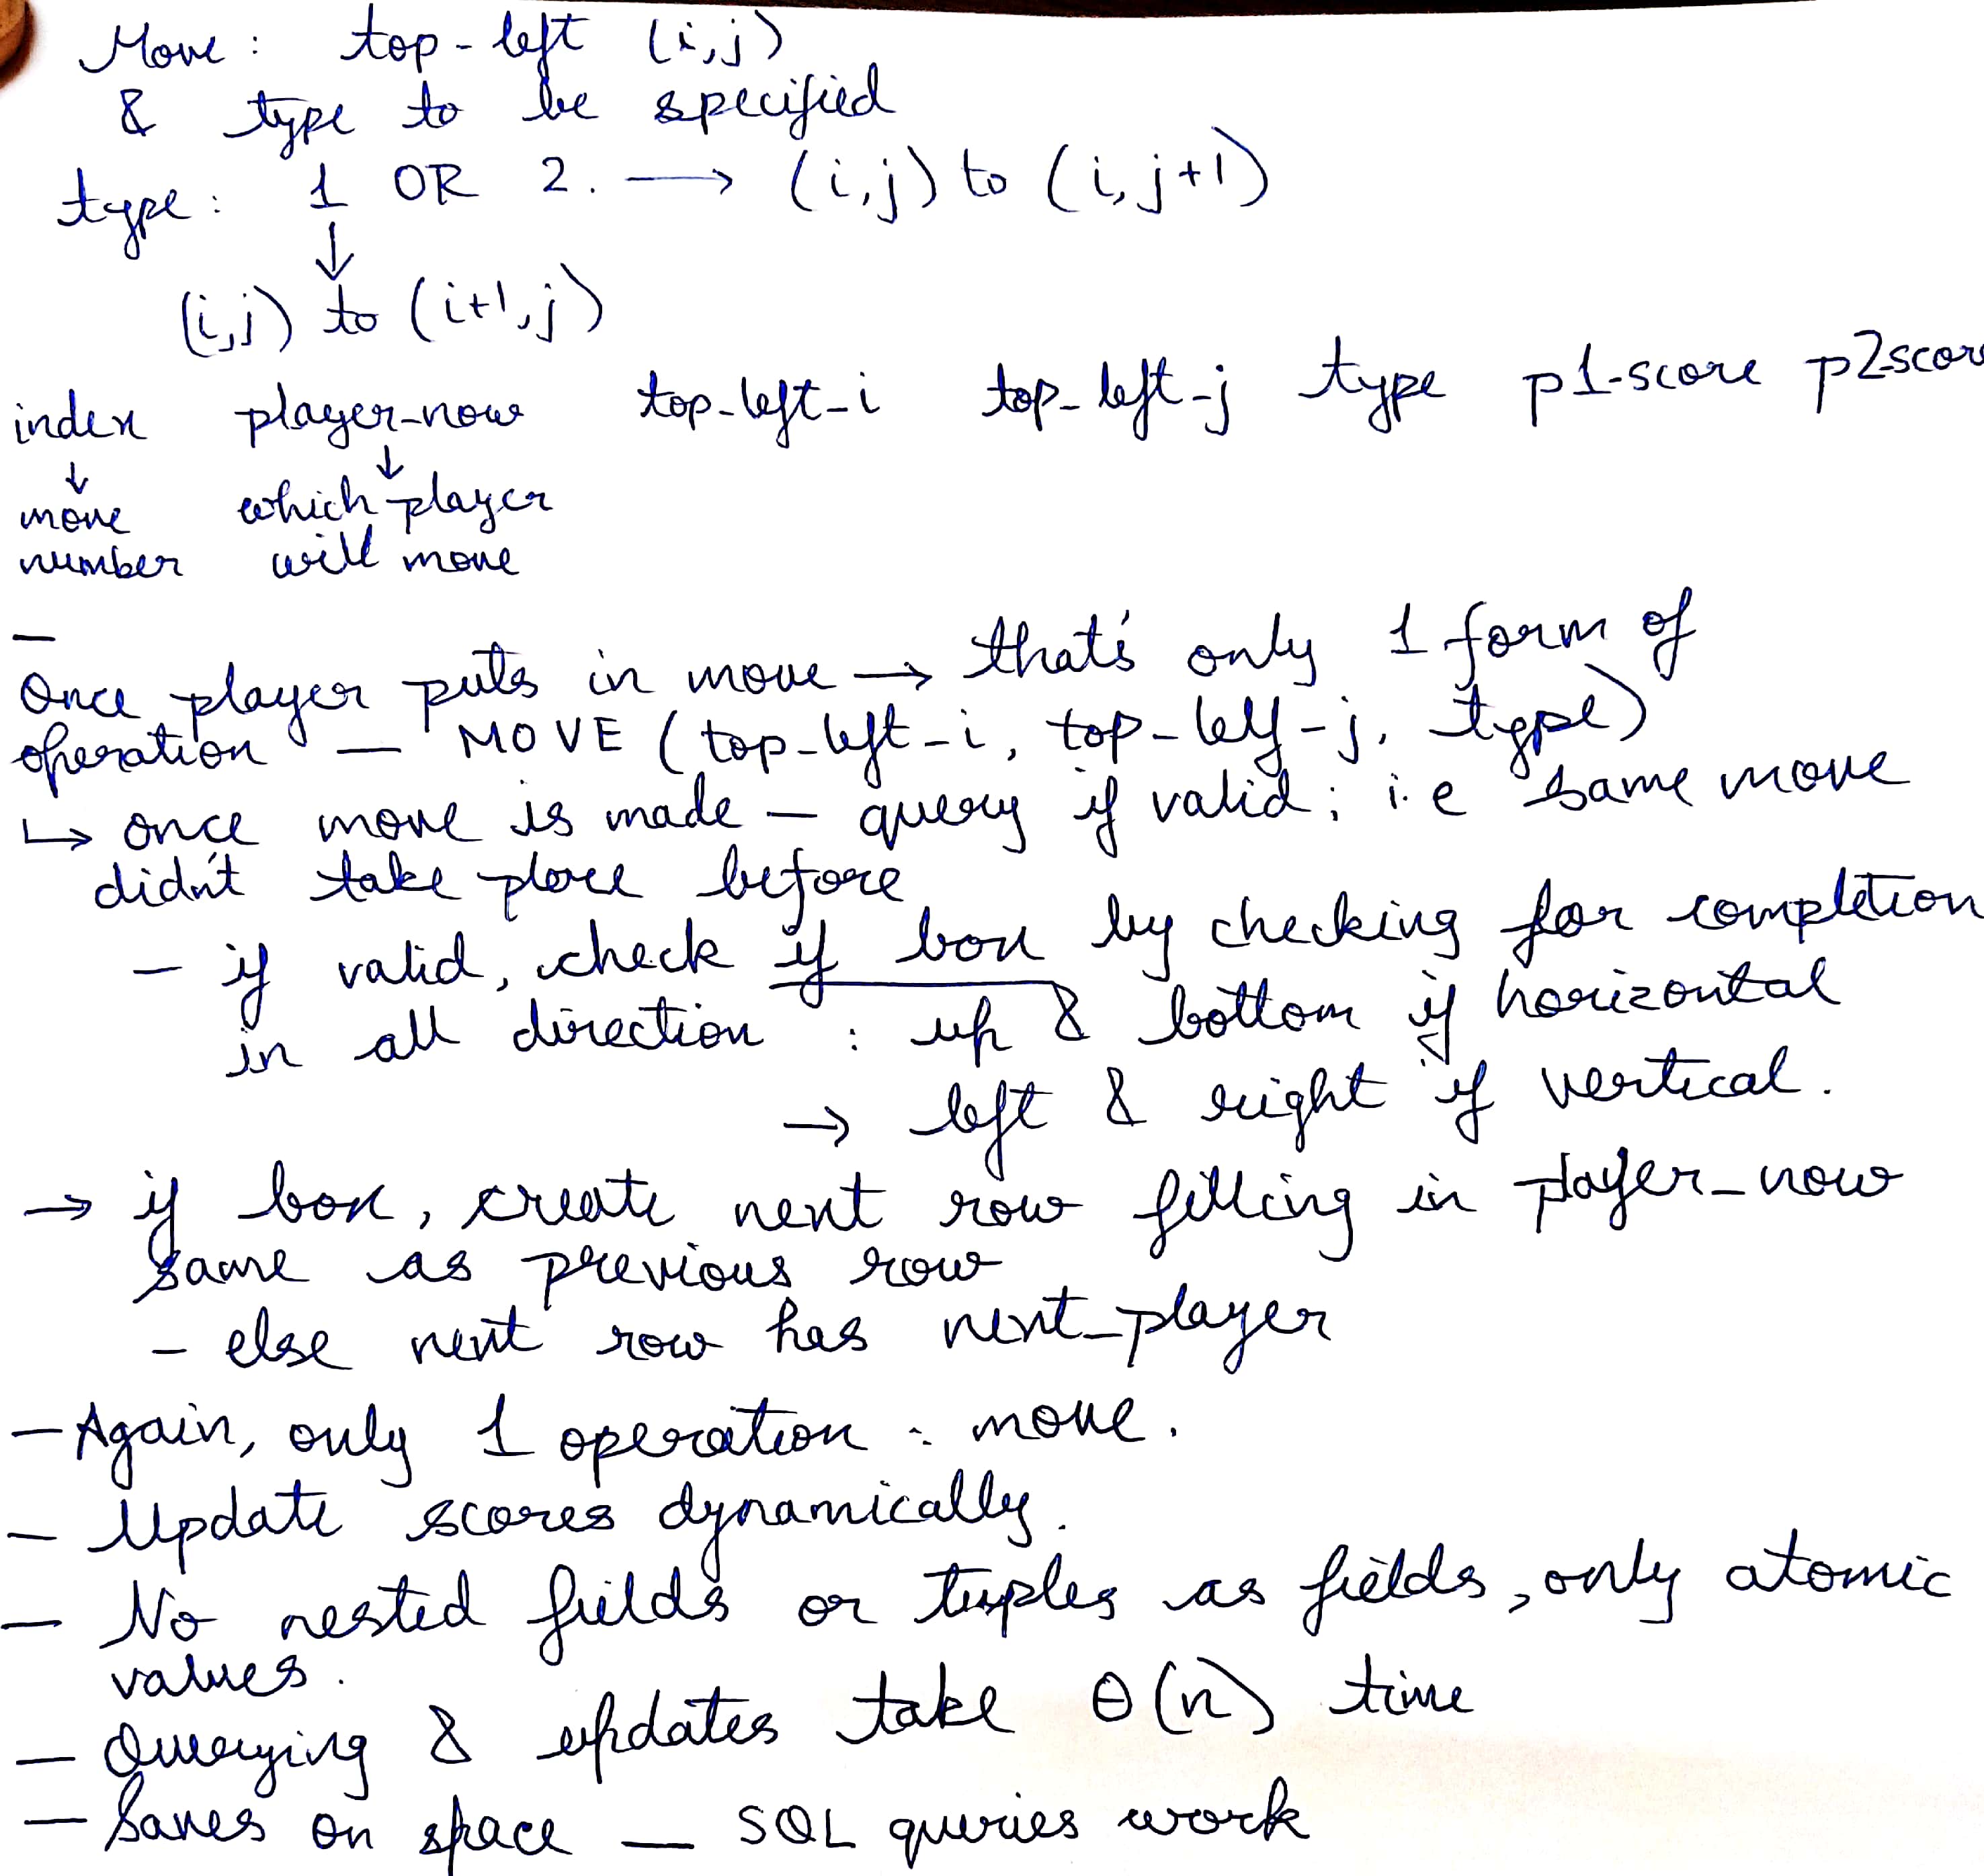 Move : top-left (i,j)
& type to be specified
type : 1 OR 2. → (i,j) to (i,j+1)
↓
(i,j) to (i+1,j)
index player-now top-left-i top-left-j type p1-score p2score
↓ ↓
move which player
number will move
—
Once player puts in move → that's only 1 form of
operation — MOVE (top-left-i, top-lef-j, type)
↳ once move is made — query if valid; i.e same move
didn't take place before
- if valid, check if box by checking for completion
in all direction : up & bottom if horizontal
→ left & right if vertical.
→ if box, create next row filling in player-now
same as previous row
- else next row has next-player
- Again, only 1 operation : move.
- Update scores dynamically.
- No nested fields or tuples as fields, only atomic
values.
- Querying & updates take θ(n) time
- Saves on space — SQL queries work